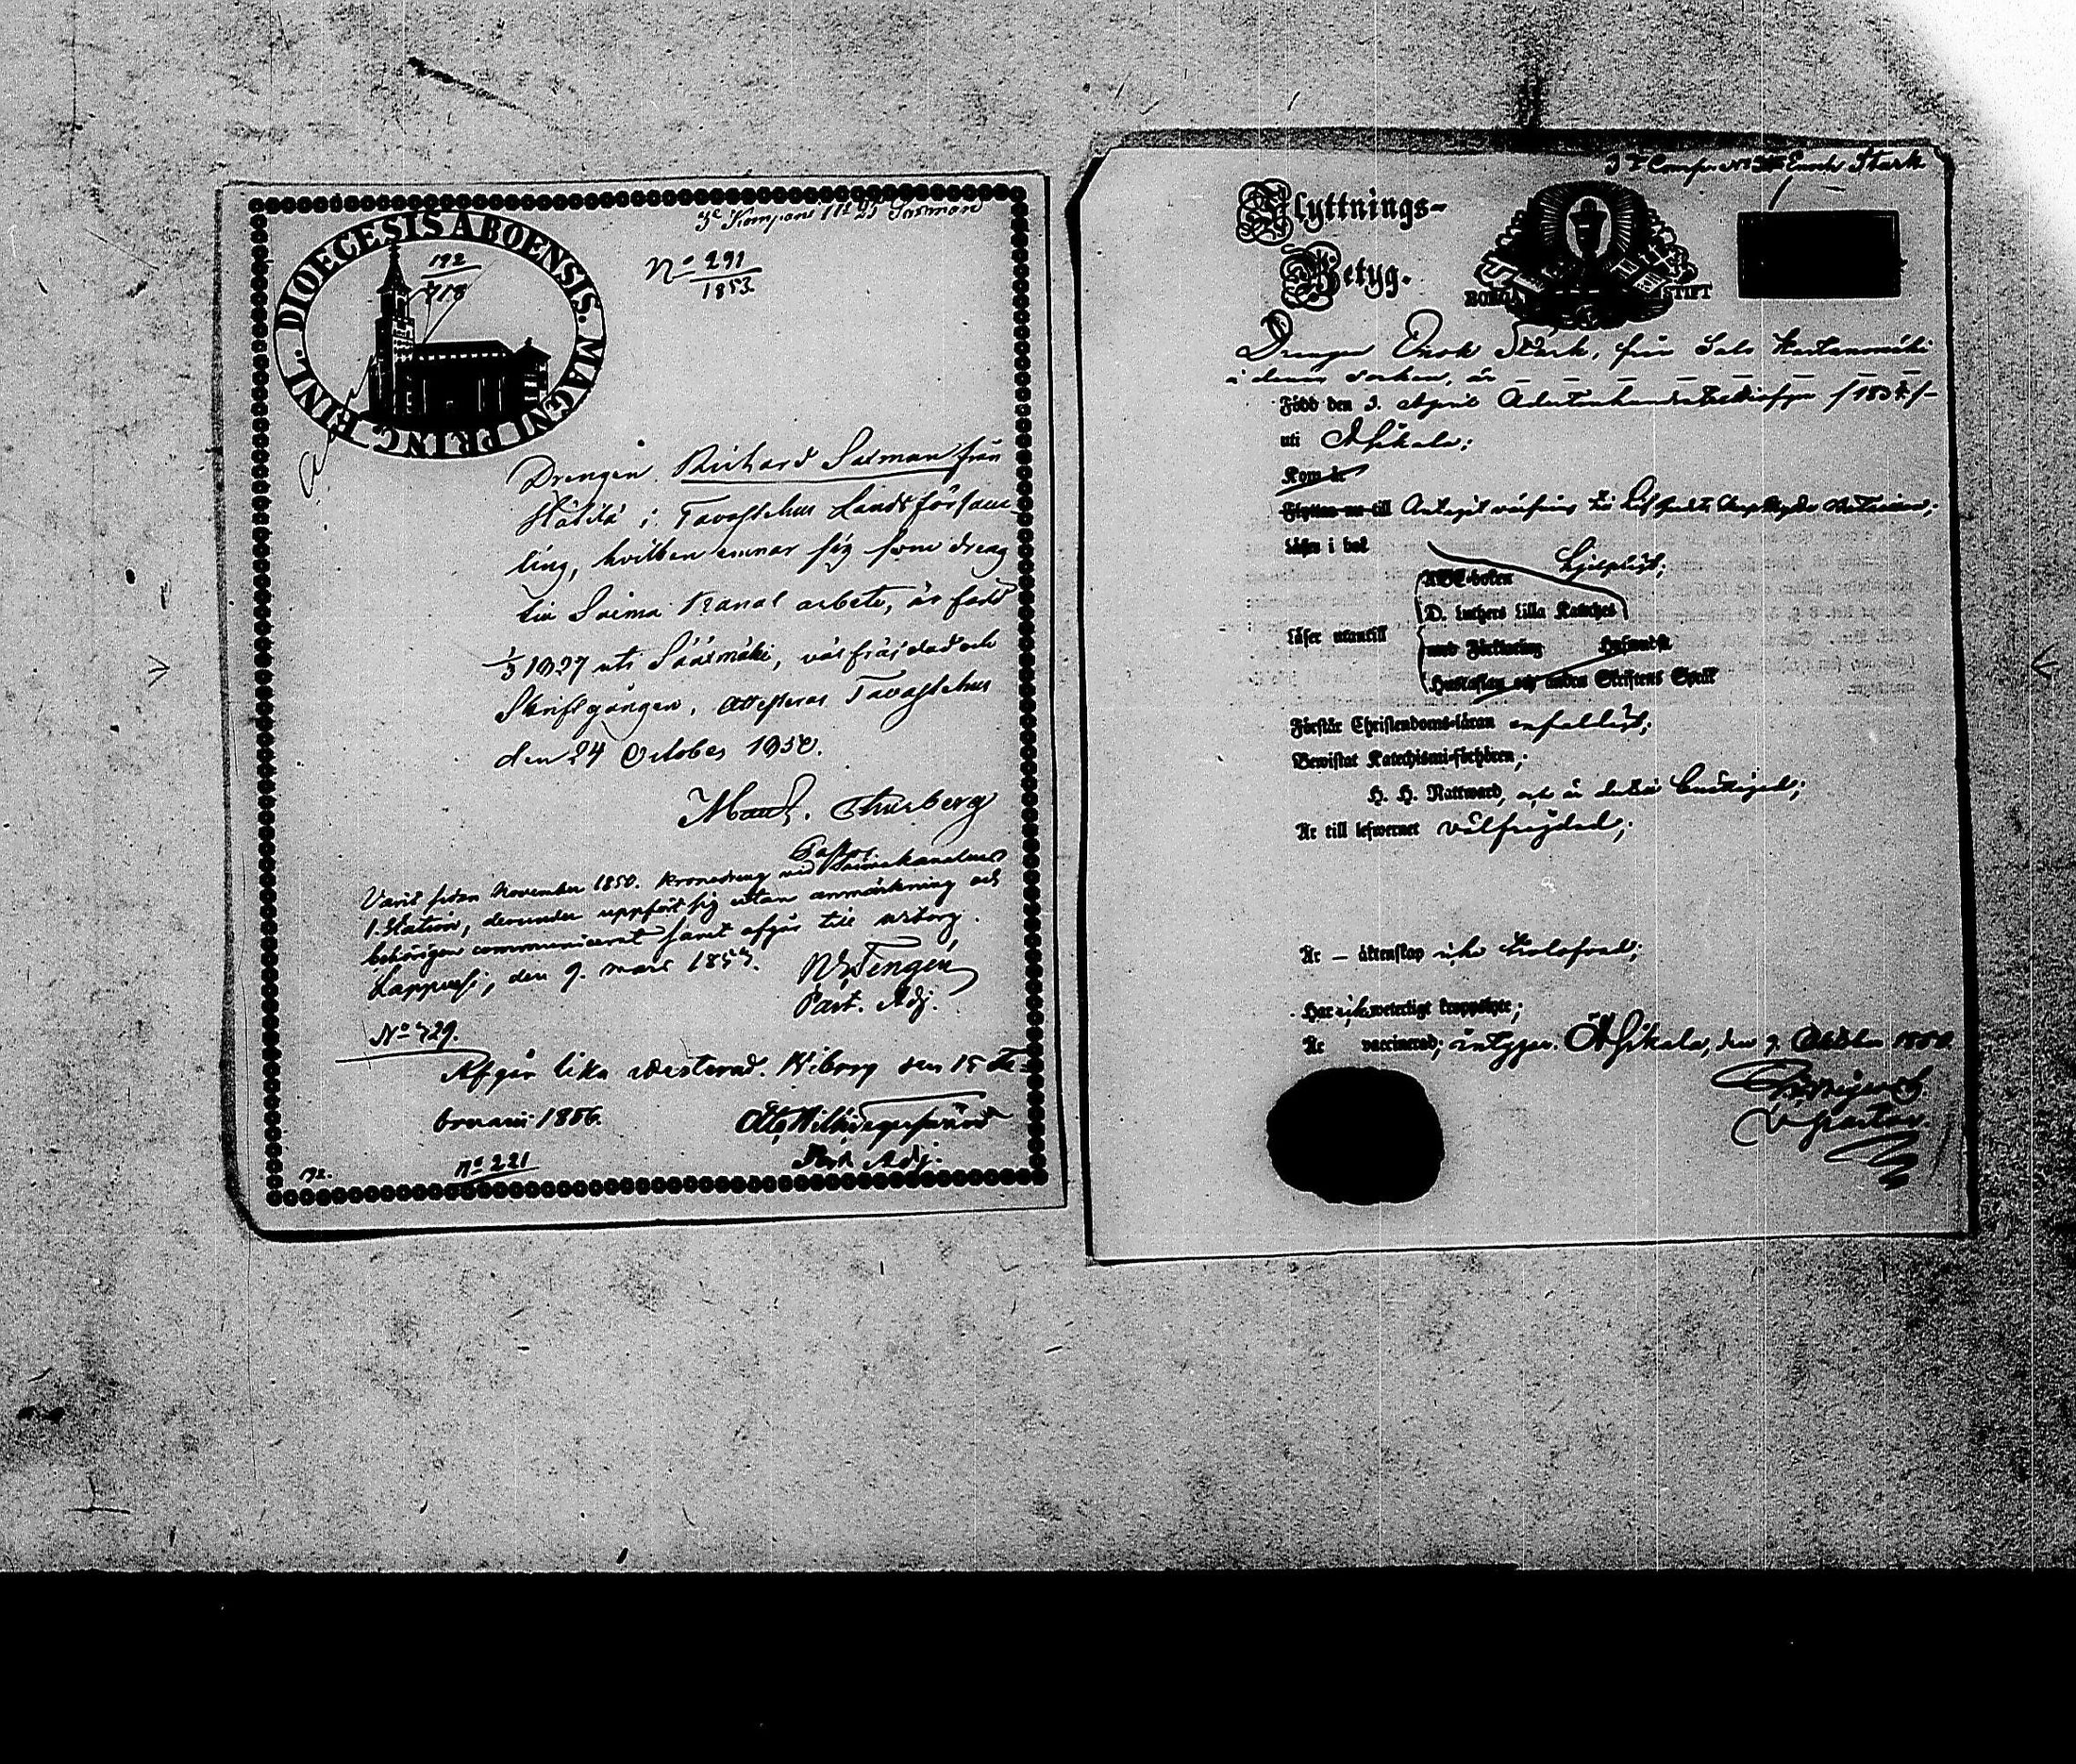 3e Kompani No 25 Sarman
DIOECESIS ABOENSIS. MAGNI PRINC. FINL.
192
718
No 291
1853.
Drengen Richard Sarman från
Hätilä i Tavastehus Landsförsam
ling, hvilken ämnar sig som dreng
till Saima Kanal arbete, är född
1/3 1827 uti Sääxmäki, välfräjdad och
Skriftgången, attesteras Tavastehus
den 24 October 1850.
Thurberg
Pastor
Varit sedan November 1850. Kronodreng vid Saimakanalens
1. Station, derunder uppfört sig utan anmärkning och
behörigen communicerat samt afgår till Wiborg.
Lappvesi, den 9. mars 1853.
Tengen
Past. Adj.
No 729.
Afgår lika attesterad. Wiborg den 15 Fe-
bruarii 1856.
Otto Wilh.
Past Adj.
No 221
172.
3e Comp. No Enok Stark
Flyttnings-
Betyg.
BORGÅ STIFT
Drengen Enok Stark, från Salo Kartanomäki
i denna socken, är
Född den 3. April Adertonhundratrettiofyra /1834/
uti Asikala;
Kom år
Flyttar nu till Antagit värfning
Läser i bok
hjelpligt;
ABC-boken
D. Luthers Lilla Kateches
Läser utantill
med Förklaring
Hustaflan och andra Skriftens Språk
Förstår Christendoms-läran enfalligt;
Bewistat Katechismi-förhören;
H. H. Nattward, och är dertill berättigad;
Är till lefwernet välfrejdad;
Är — äktenskap icke trolofvad;
Har icke weterligt kroppslyte;
Är vaccinerad; intygar. Asikala, den 9. Oktober
v. pastor.